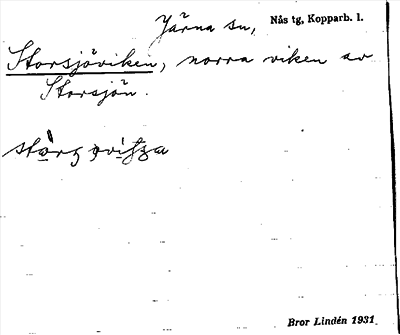 Järna sn, Nås tg, Kopparb. l.
Storsjöviken, norra viken av
Storsjön.
Bror Lindén 1931